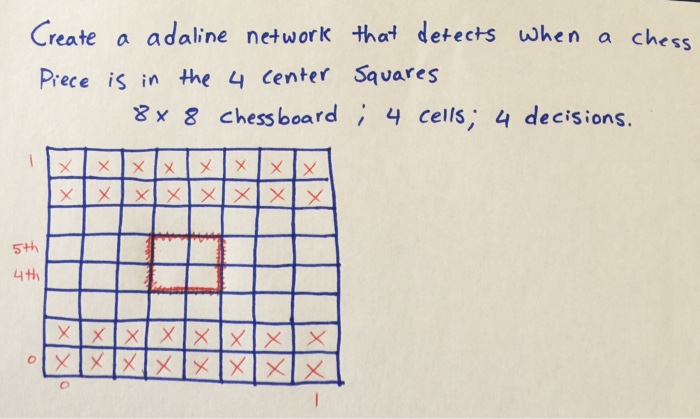 Create a adaline network that detects when a chess
Piece is in the 4 center Squares
8 x 8 chessboard ; 4 cells; 4 decisions.
1 X X X X X X X X
X X X X X X X X
5th
4th
X X X X X X X X
0 X X X X X X X X
0 1